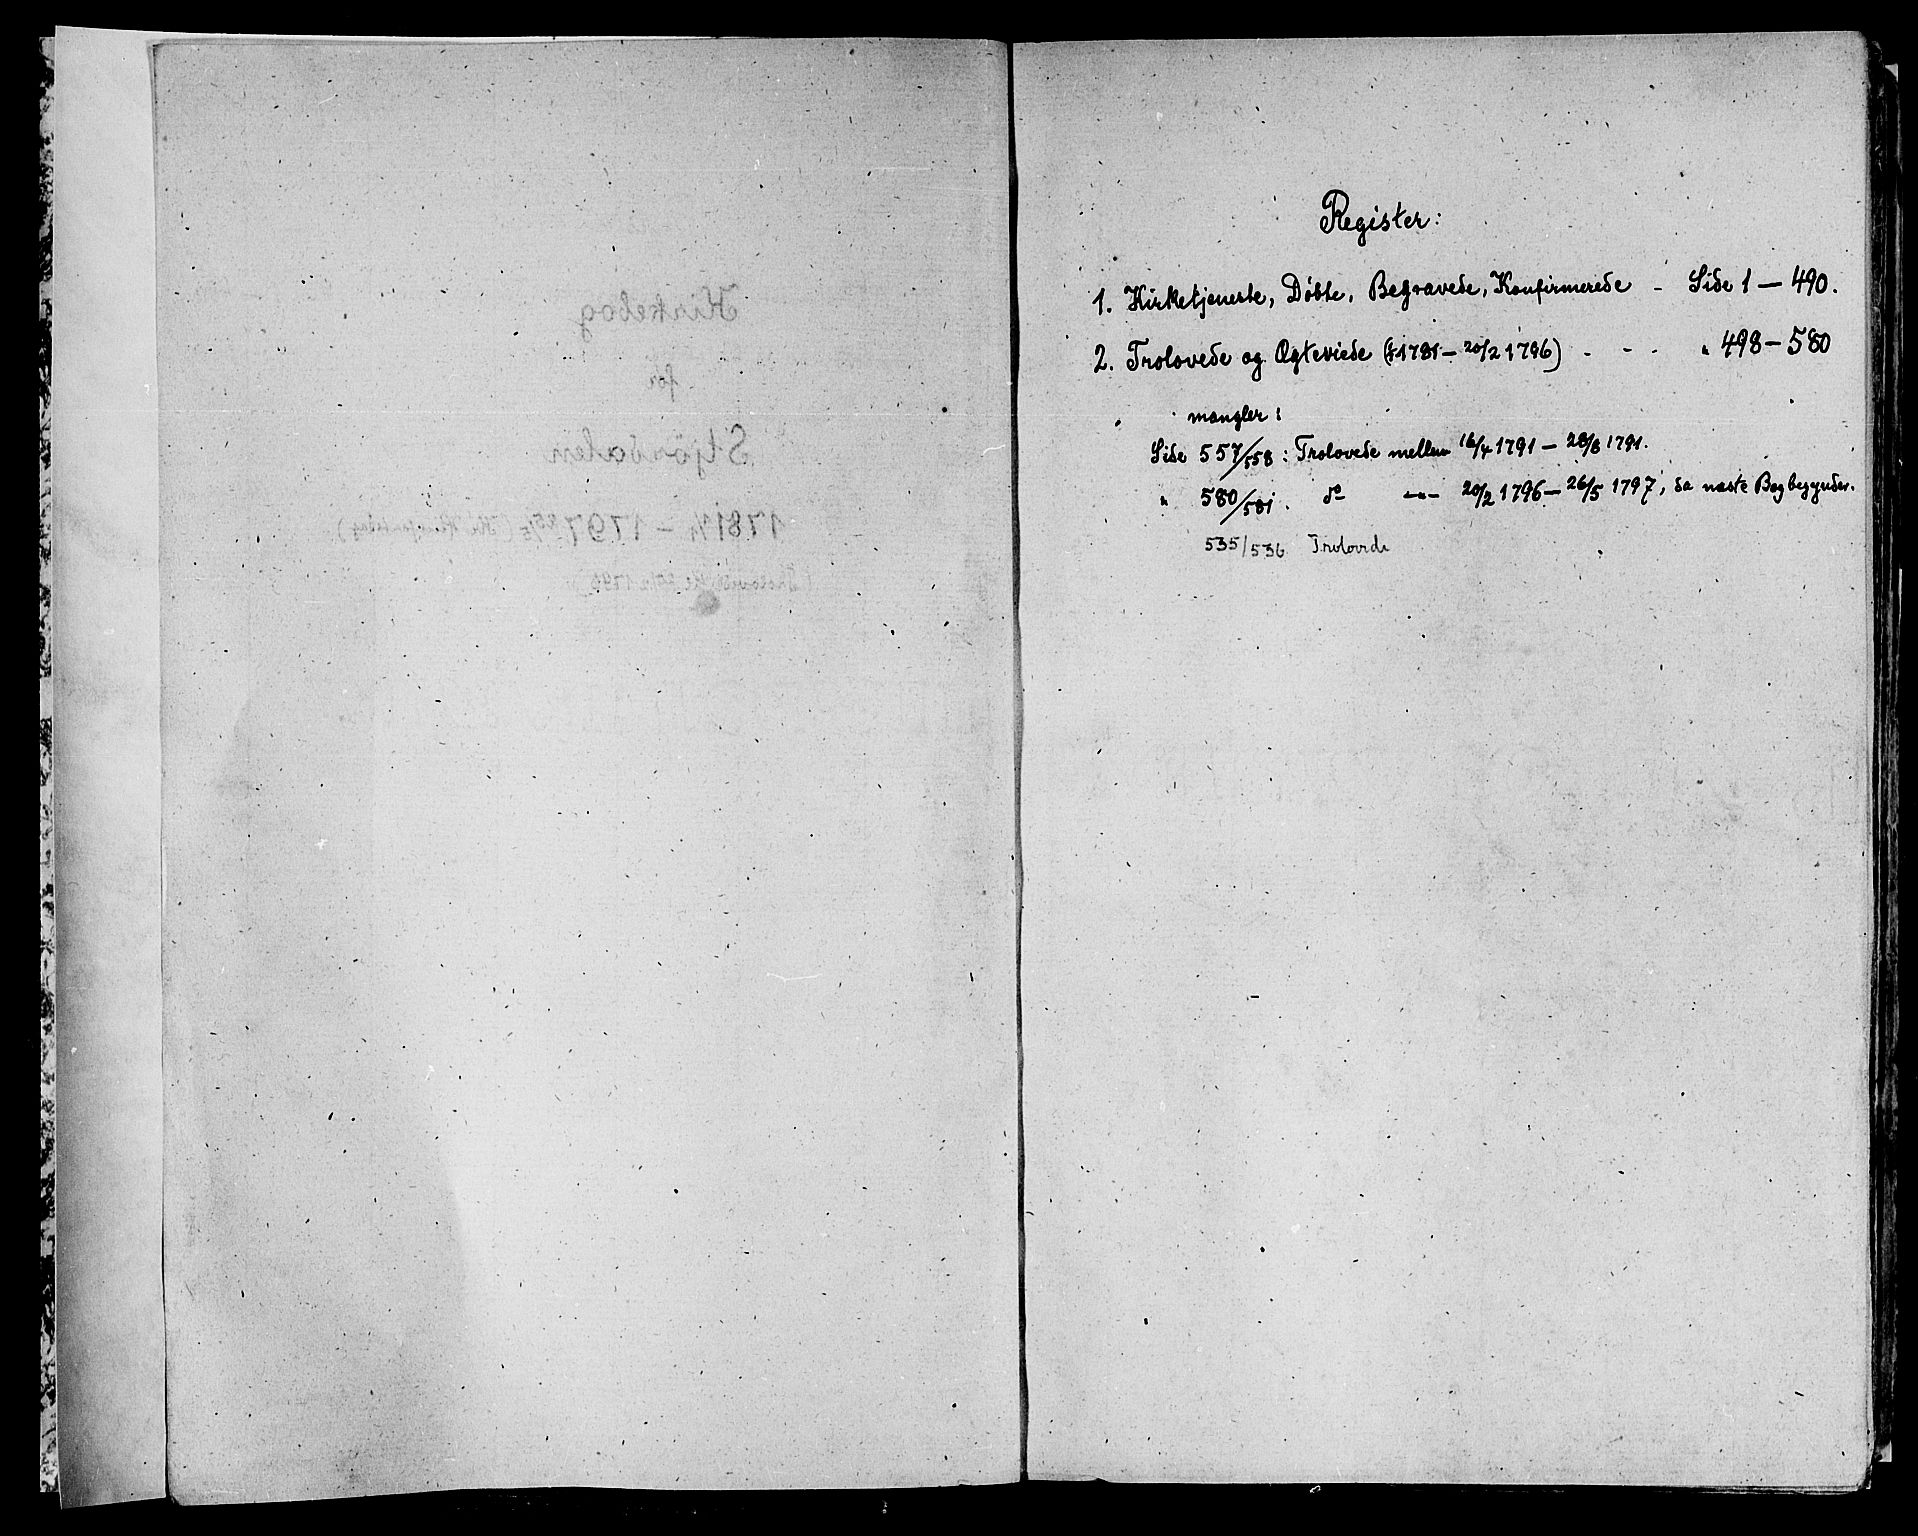 Register:
1. Kirketjeneste, Døbte, Begravede, Konfirmerede - Side 1 — 490.
2. Trolovede og Ægteviede (1781 — 20/2 1796) - - - " 498 — 580
mangler:
Side 557/558 : Trolovede mellem 16/4 1791 — 28/8 1791.
" 580/581. do —"— 20/2 1796 — 26/5 1797, da næste Bog begynder.
535/536 Trolovede
Kirkebog
for
Stjørdalen
1781 - 1797